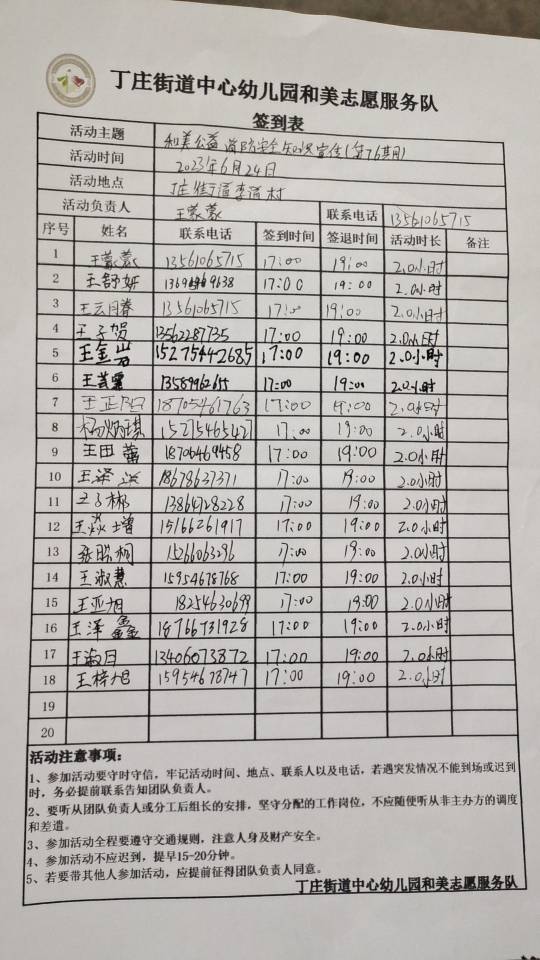 丁庄街道中心幼儿园和美志愿服务队
签到表
活动主题 和美公益 消防安全知识宣传(第76期)
活动时间 2023年6月24日
活动地点 丁庄街道李道村
活动负责人 王蒙蒙 联系电话 13561065715
序号 姓名 联系电话 签到时间 签退时间 活动时长 备注
1 王蒙蒙 13561065715 17:00 19:00 2.0小时
2 王舒妍 17:00 19:00 2.0小时
3 13561065715 17:00 19:00 2.0小时
4 王子贺 13562287735 17:00 19:00 2.0小时
5 王金岩 15275442685 17:00 19:00 2.0小时
6 13589962655 17:00 19:00 2.0小时
7 18705461763 17:00 19:00 2.0小时
8 15275465421 17:00 19:00 2.0小时
9 王田蕾 18706469458 17:00 19:00 2.0小时
10 18678637371 17:00 19:00 2.0小时
11 王子郴 13864728228 17:00 19:00 2.0小时
12 15166261917 17:00 19:00 2.0小时
13 15266063296 17:00 19:00 2.0小时
14 王淑慧 15954678768 17:00 19:00 2.0小时
15 王亚旭 18254630699 17:00 19:00 2.0小时
16 王泽鑫 18766731928 17:00 19:00 2.0小时
17 13406073872 17:00 19:00 2.0小时
18 王梓旭 15954678747 17:00 19:00 2.0小时
19
20
活动注意事项：
1、参加活动要守时守信，牢记活动时间、地点、联系人以及电话，若遇突发情况不能到场或迟到
时，务必提前联系告知团队负责人。
2、要听从团队负责人或分工后组长的安排，坚守分配的工作岗位，不应随便听从非主办方的调度
和差遣。
3、参加活动全程要遵守交通规则，注意人身及财产安全。
4、参加活动不应迟到，提早15-20分钟。
5、若要带其他人参加活动，应提前征得团队负责人同意。
丁庄街道中心幼儿园和美志愿服务队